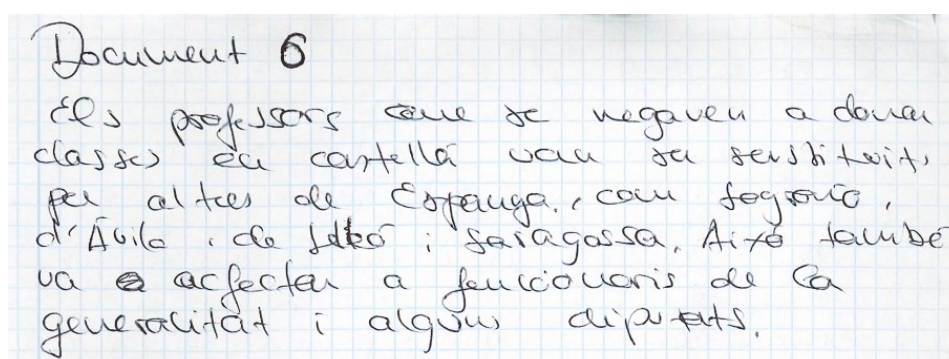 Document 6
Els professors que se negaven a donar
classes en castellà van ser sustituits
per altres de Espanya, com Logroño,
d'Àvila, de i Saragossa. Aixó també
va acfectar a funcionaris de la
generalitat i alguns diputats.